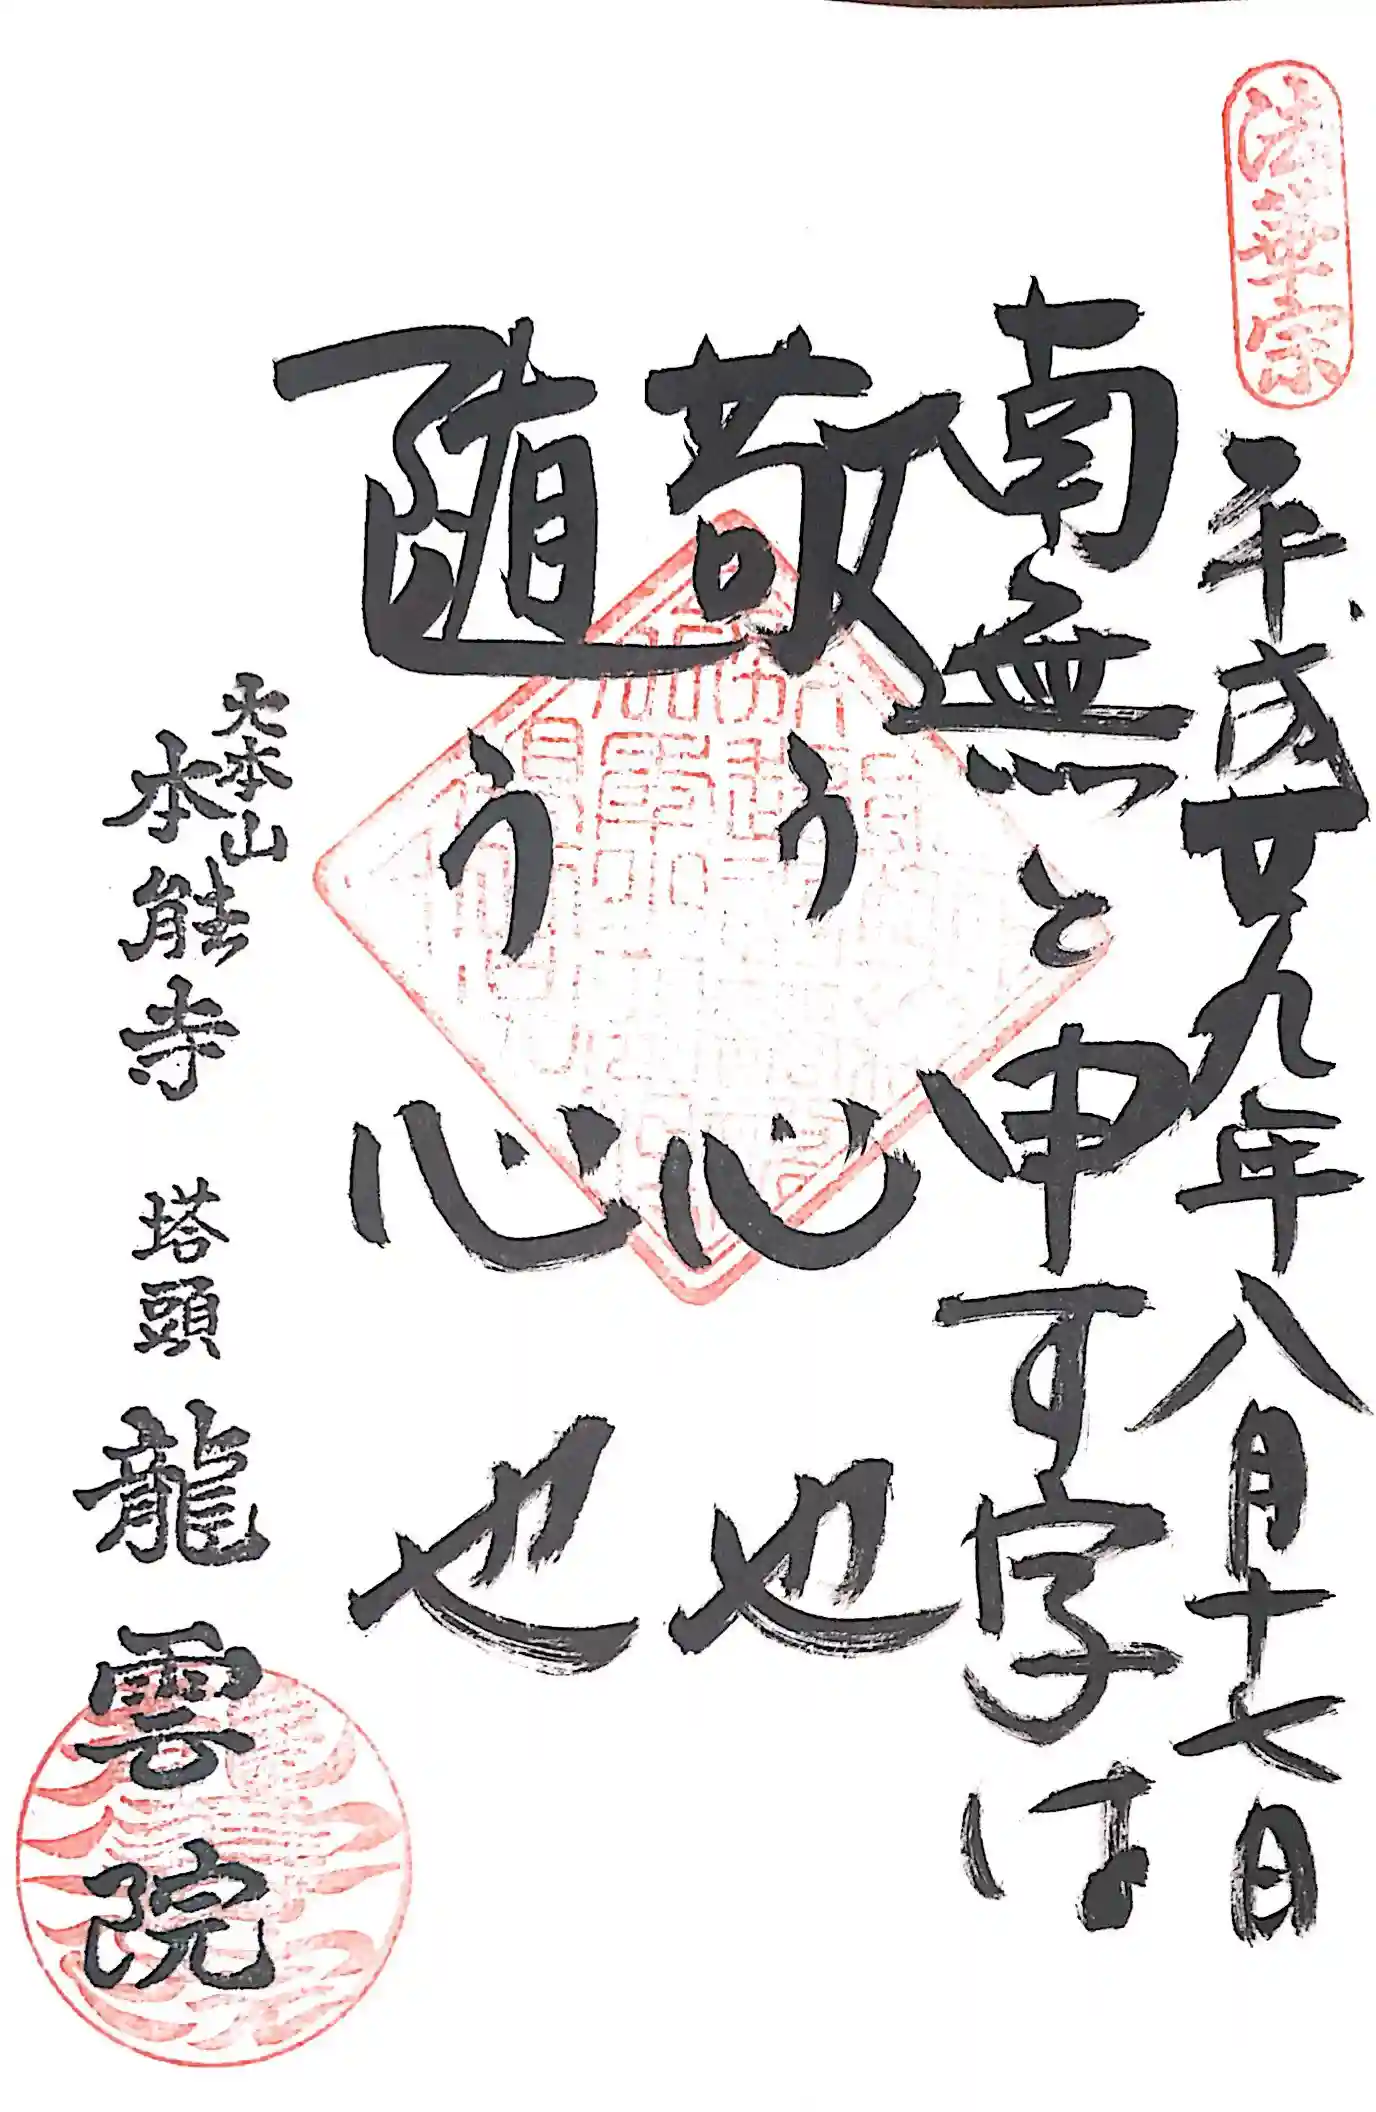 法華宗
平成廿九年八月十七日
南無と申す字は
敬う心也
随う心也
大本山
本能寺 塔頭 龍雲院